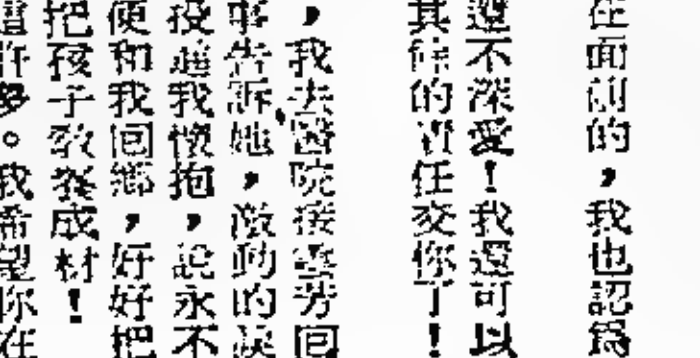 在面前的，我也認爲
還不深愛！我還可以
其餘的責任交你了！
，我去醫院接雲芳回
事告訴她，激動的淚
投進我懷抱，說永不
便和我回鄉，好好把
把孩子教養成材！
這許多。我希望你在